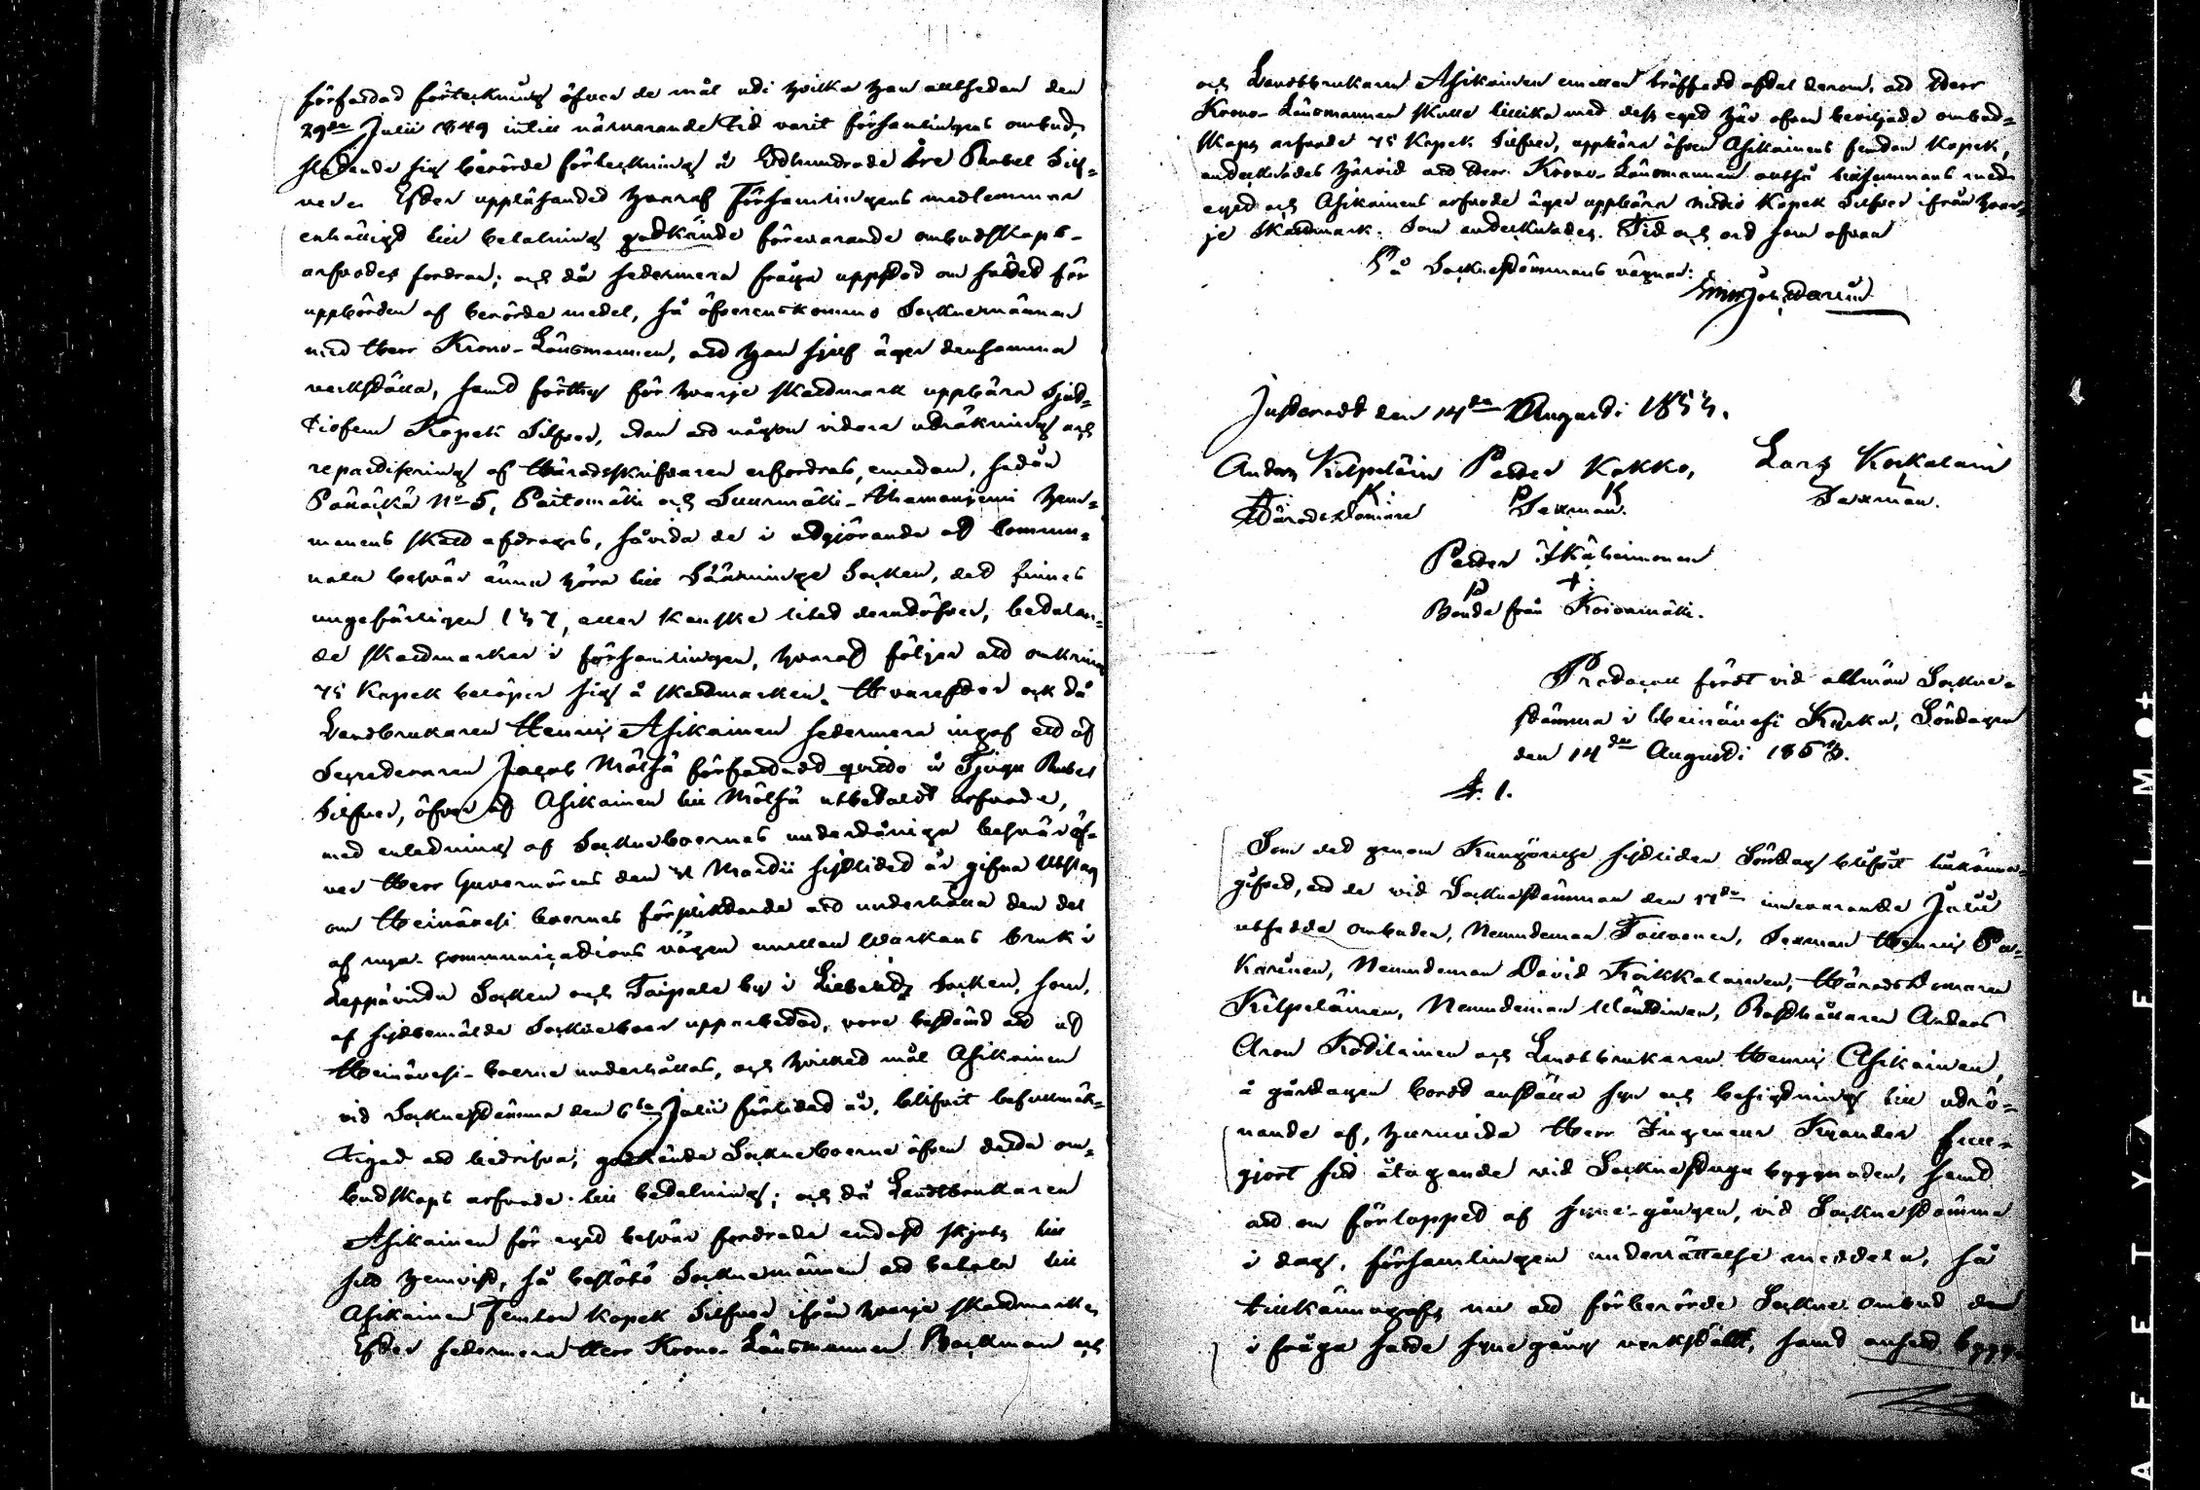 författad förteckning öfver de mål udi hvilka han alltsedan den
29de Julii 1849 intill närvarande tid varit församlingens ombud,
stigande sig berörde förteckning å Etthundrade tre Rubel Silf-
ver. Efter uppläsandet häraf Församlingens medlemmar
enhälligt till betalning godkände förevarande ombudskaps-
arfvodes fordran; och då sedermera fråga uppstod om sättet för
uppbörden af berörde medel, så öfverenskommo Sockenemännen
med Herr Krono-Länsmannen, att han sjelf äger densamma
verkställa, samt förty för hvarje skattmark uppbära Sjut-
tiofem Kopek Silfver, utan att någon vidare uträkning och
repartisering af Häradsskrifvaren erfordras, emedan, sedan
No 5, och hem-
manens skatt afdrages, såvida de i utgjörande af commu-
nala besvär ännu höra till Sääminge Socken, det finnes
ungefärligen 137, eller kanske litet derutöfver, betalan-
de skattmarker i församlingen, hvaraf följer att omkring
75 Kopek belöper sig å skattmarken. Hvarefter och då
Landbrukaren Henric Asikainen sedermera ingaf ett af
Jacob Mölsä författadt qvitto å Tjugu Rubel
Silfver, öfver af Asikainen till Mölsä utbetaldt arfvode,
med anledning af Socknеboernes underdåniga besvär öf-
ver Herr Guvernörens den Martii sistlidet år gifna Utslag
om Heinävesi boernes förpliktande att underhålla den del
af nya communications vägen emellan Warkaus bruk i
Leppävirta Socken och Taipale by i Libelitz Socken, som,
af sistbemälde Sockneboer upparbetad, vore bestämd att af
Heinävesi-boerne underhållas, och hvilket mål Asikainen
vid Socknestämma den 6te Julii förlidet år, blifvit befullmäk-
tigad att bedrifva; godkände Sockneboerne äfven detta om-
budskaps arfvode till betalning; och då Landtbrukaren
Asikainen för eget besvär fordrade endast skjuts till
sitt hemvist, så beslöto Socknemännen att betala till
Asikainen Femton kopek Silfver ifrån hvarje skattmark.
Efter sedermera Herr Krono-Länsmannen Backman och
och Landtbrukaren Asikainen emellan träffadt aftal derom, att Herr
Krono-Länsmannen skulle tillika med dess eget här ofvan beviljade ombud-
skaps arfvode 75 Kopek Silfver, uppbära äfven Asikainens femton Kopek,
antecknades härvid att Herr Krono-Länsmannen altså tillsammans med
eget och Asikainens arfvode äger uppbära nittio Kopek Silfver ifrån hvar-
je Skattmark. Som antecknades. Tid och ort som ofvan
På Socknestämmans vägnar:
Justeradt den 14de Augusti 1853.
Anders Kilpeläin Petter Kokko, Lars Koikalain
K P K
Häradsdomare Sexman. Sexman.
Petter Ikäheimonen
P +
Bonde från Koivumäki.
Protocoll fördt vid allmän Sockne-
stämma i Heinävesi Kyrka, Söndagen
den 14de Augusti 1853.
§. 1.
Som det genom Kungörelse sistliden Söndag blifvit tillkänna-
gifvet, att de vid Socknestämman den 17de innevarande Julii
utsedde ombuden, Nemndeman Toivanen, Sexman Henric Pa-
karinen, Nemndeman David Koikkalainen, Häradsdomaren
Kilpeläinen, Nemndeman, Rusthållaren Anders
Aron Kotilainen och Landtbrukaren Henric Asikainen,
å gårdagen bordt anställa syn och besigtning till utrö-
nande af, huruvida Herr Ingenieur Kyander full-
gjort sitt åtagande vid Socknestugu byggnaden, samt
att om förloppet af syne-gången, vid Socknestämma
i dag, församlingen underrättelse meddela, så
tillkännagafs nu att förberörde Sockne ombud den
i fråga satte synegång verkställt, samt ansett bygg-